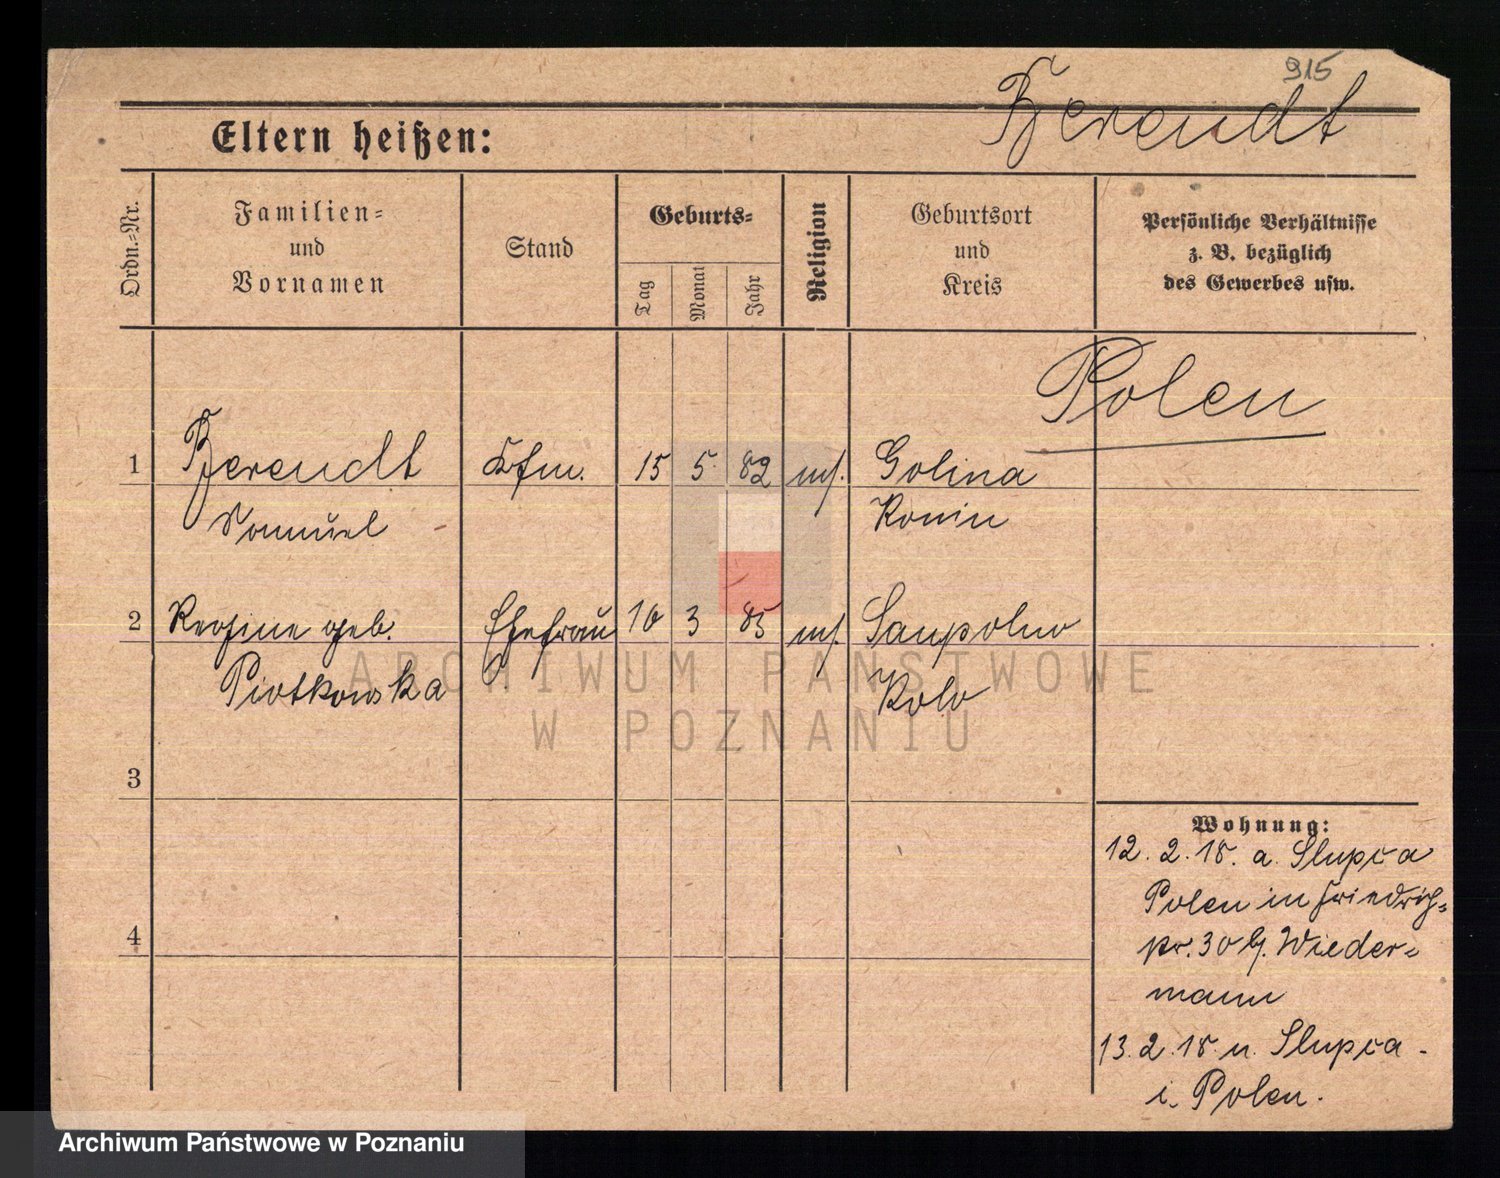 915
Berendt
Eltern heißen:
Ordn.=Nr.
Familien=
und
Vornamen
Stand
Geburts=
Tag
Monat
Jahr
Religion
Geburtsort
und
Kreis
Persönliche Verhältnisse
z. B. bezüglich
des Gewerbes usw.
Polen
1 Berendt Kfm. 15 5. 82 mos. Golina
Samuel Konin
2 Regine geb. Ehefrau 10 3 85 mos. Sampolno
Piotkowska Kolo
3
4
Wohnung:
12. 2. 18. a. Slupca
Polen in Friedrich=
str. 30 b. Wieder=
mann
13. 2. 18 n. Slupca -
i. Polen.
ARCHIWUM PAŃSTWOWE
W POZNANIU
Archiwum Państwowe w Poznaniu